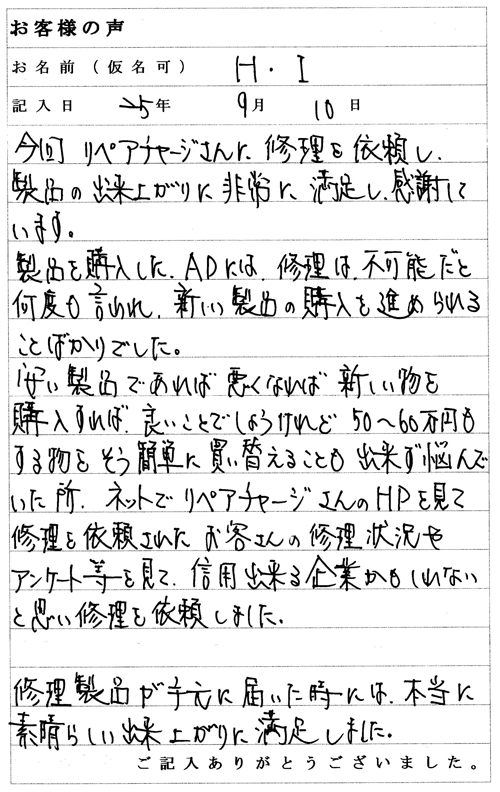 お客様の声
お名前（仮名可） H・I
記入日 25年 9月 10日
今回 リペアチャージさんに、修理を依頼し、
製品の出来上がりに非常に満足し、感謝して
います。
製品を購入した、ADには、修理は、不可能だと
何度も言われ、新しい製品の購入を進められる
ことばかりでした。
安い製品であれば悪くなれば新しい物を
購入すれば、良いことでしょうけれど 50～60万円も
する物をそう簡単に買い替えることも出来ず悩んで
いた所、ネットでリペアチャージさんのHPを見て
修理を依頼されたお客さんの修理状況や
アンケート等を見て、信用出来る企業かもしれない
と思い修理を依頼しました。
修理製品が手元に届いた時には、本当に
素晴らしい出来上がりに満足しました。
ご記入ありがとうございました。